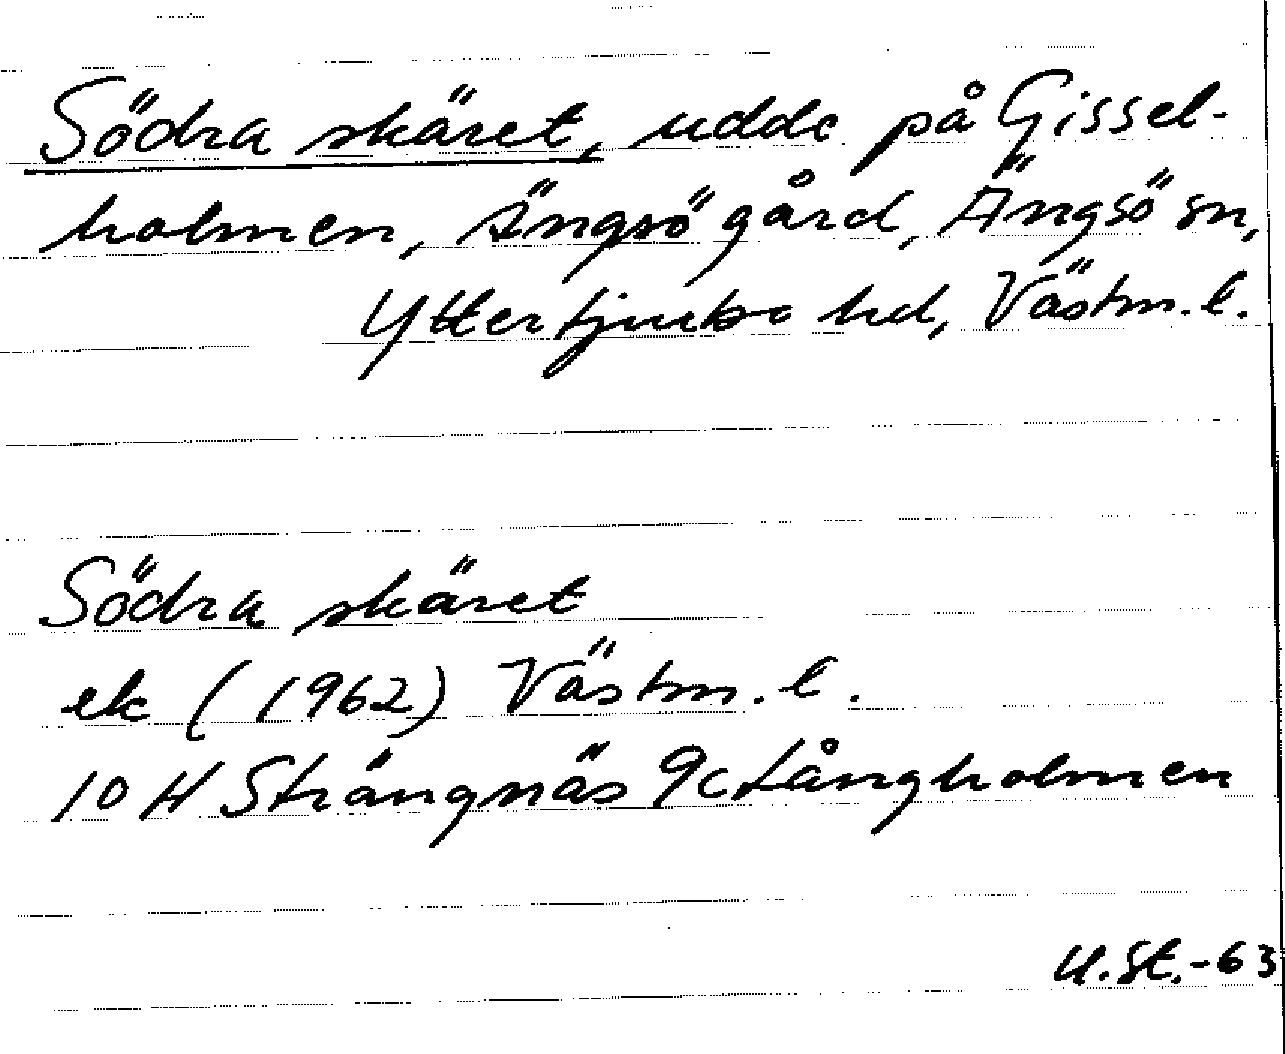 Södra skäret, udde på Gissel-
holmen, Ängsö gård, Ängsö sn,
Yttertjurbo hd, Västm. l.
Södra skäret
ek (1962) Västm. l.
10 H Strängnäs 9c Långholmen
U.St.-63